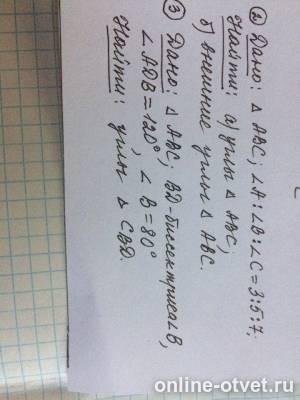 ② Дано: △ ABC, ∠A:∠B:∠C=3:5:7.
Найти: а) углы △ ABC,
б) внешние углы △ ABC.
③ Дано: △ ABC; BD-биссектриса∠B,
∠ADB=120°, ∠B=80°
Найти: углы △ CBD.
online-otvet.ru